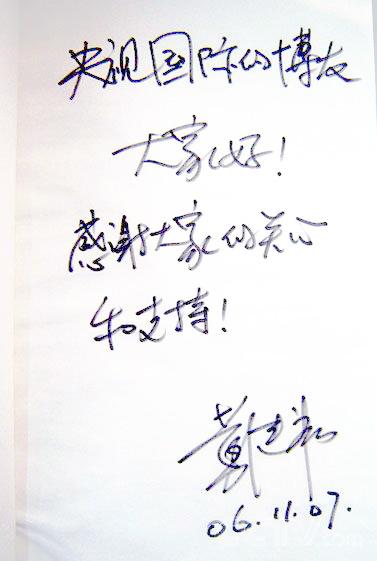 央视国际的博友
大家好!
感谢大家的关心
和支持!
06.11.07.